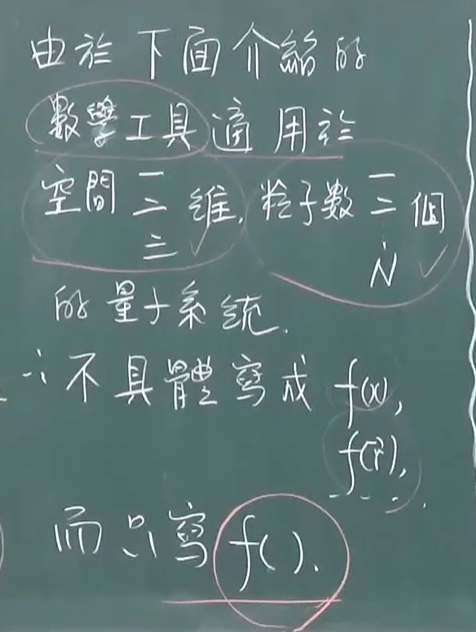 由於下面介紹的
數學工具適用於
空間一二三維, 粒子數一二…N個
的量子系統.
∴不具體寫成 f(x),
f(r⃗),
而只寫 f( ).